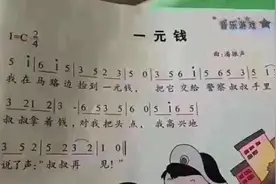 音乐游戏
一元钱
1=C 2/4
曲:潘振声
5 i | 6 i 5 | 3 5 2 3 | 5 0 | 3 5 5 i | 6 5 3 5 | 2 0 |
我 在 马 路 边 捡 到 一 元 钱， 把 它 交 给 警 察 叔 叔 手 里
3 2 1 2 | 3 - | 6 5 3 5 | 6 0 | 5 i
叔 叔 拿 着 钱， 对 我 把 头 点， 我 高 兴 地
3 5 2 | 5 2 3 2 | 1 0 ||
说 了 声：“叔 叔 再 见！”